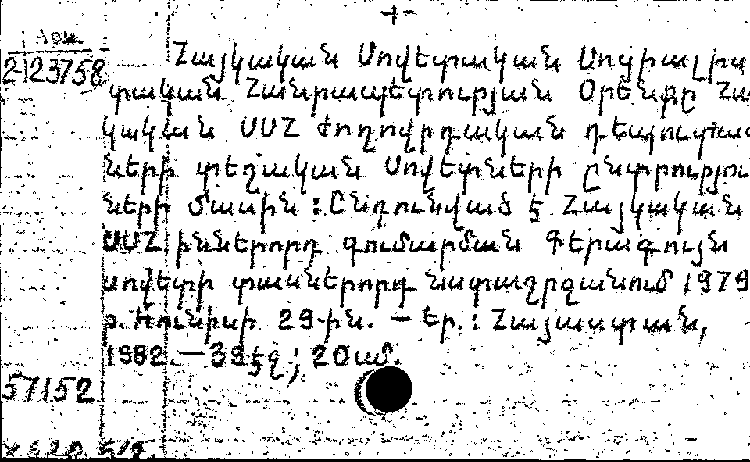 Հայկական Սովետական Սոցիալիս
2123758
տական Հանրապետության Օրենքը Հայ
կական ՍՍՀ Ժողովրդական դեպուտատ
ների տեղական Սովետների ընտրությու
ների մասին: Ընդունված է Հայկական
ՍՍՀ իններորդ գումարման Գերագույն
սովետի տասներորդ նստաշրջանում 1979
թ. Հունիսի 29-ին. — Եր.: Հայաստան,
1982.—39էջ; 20սմ.
57152